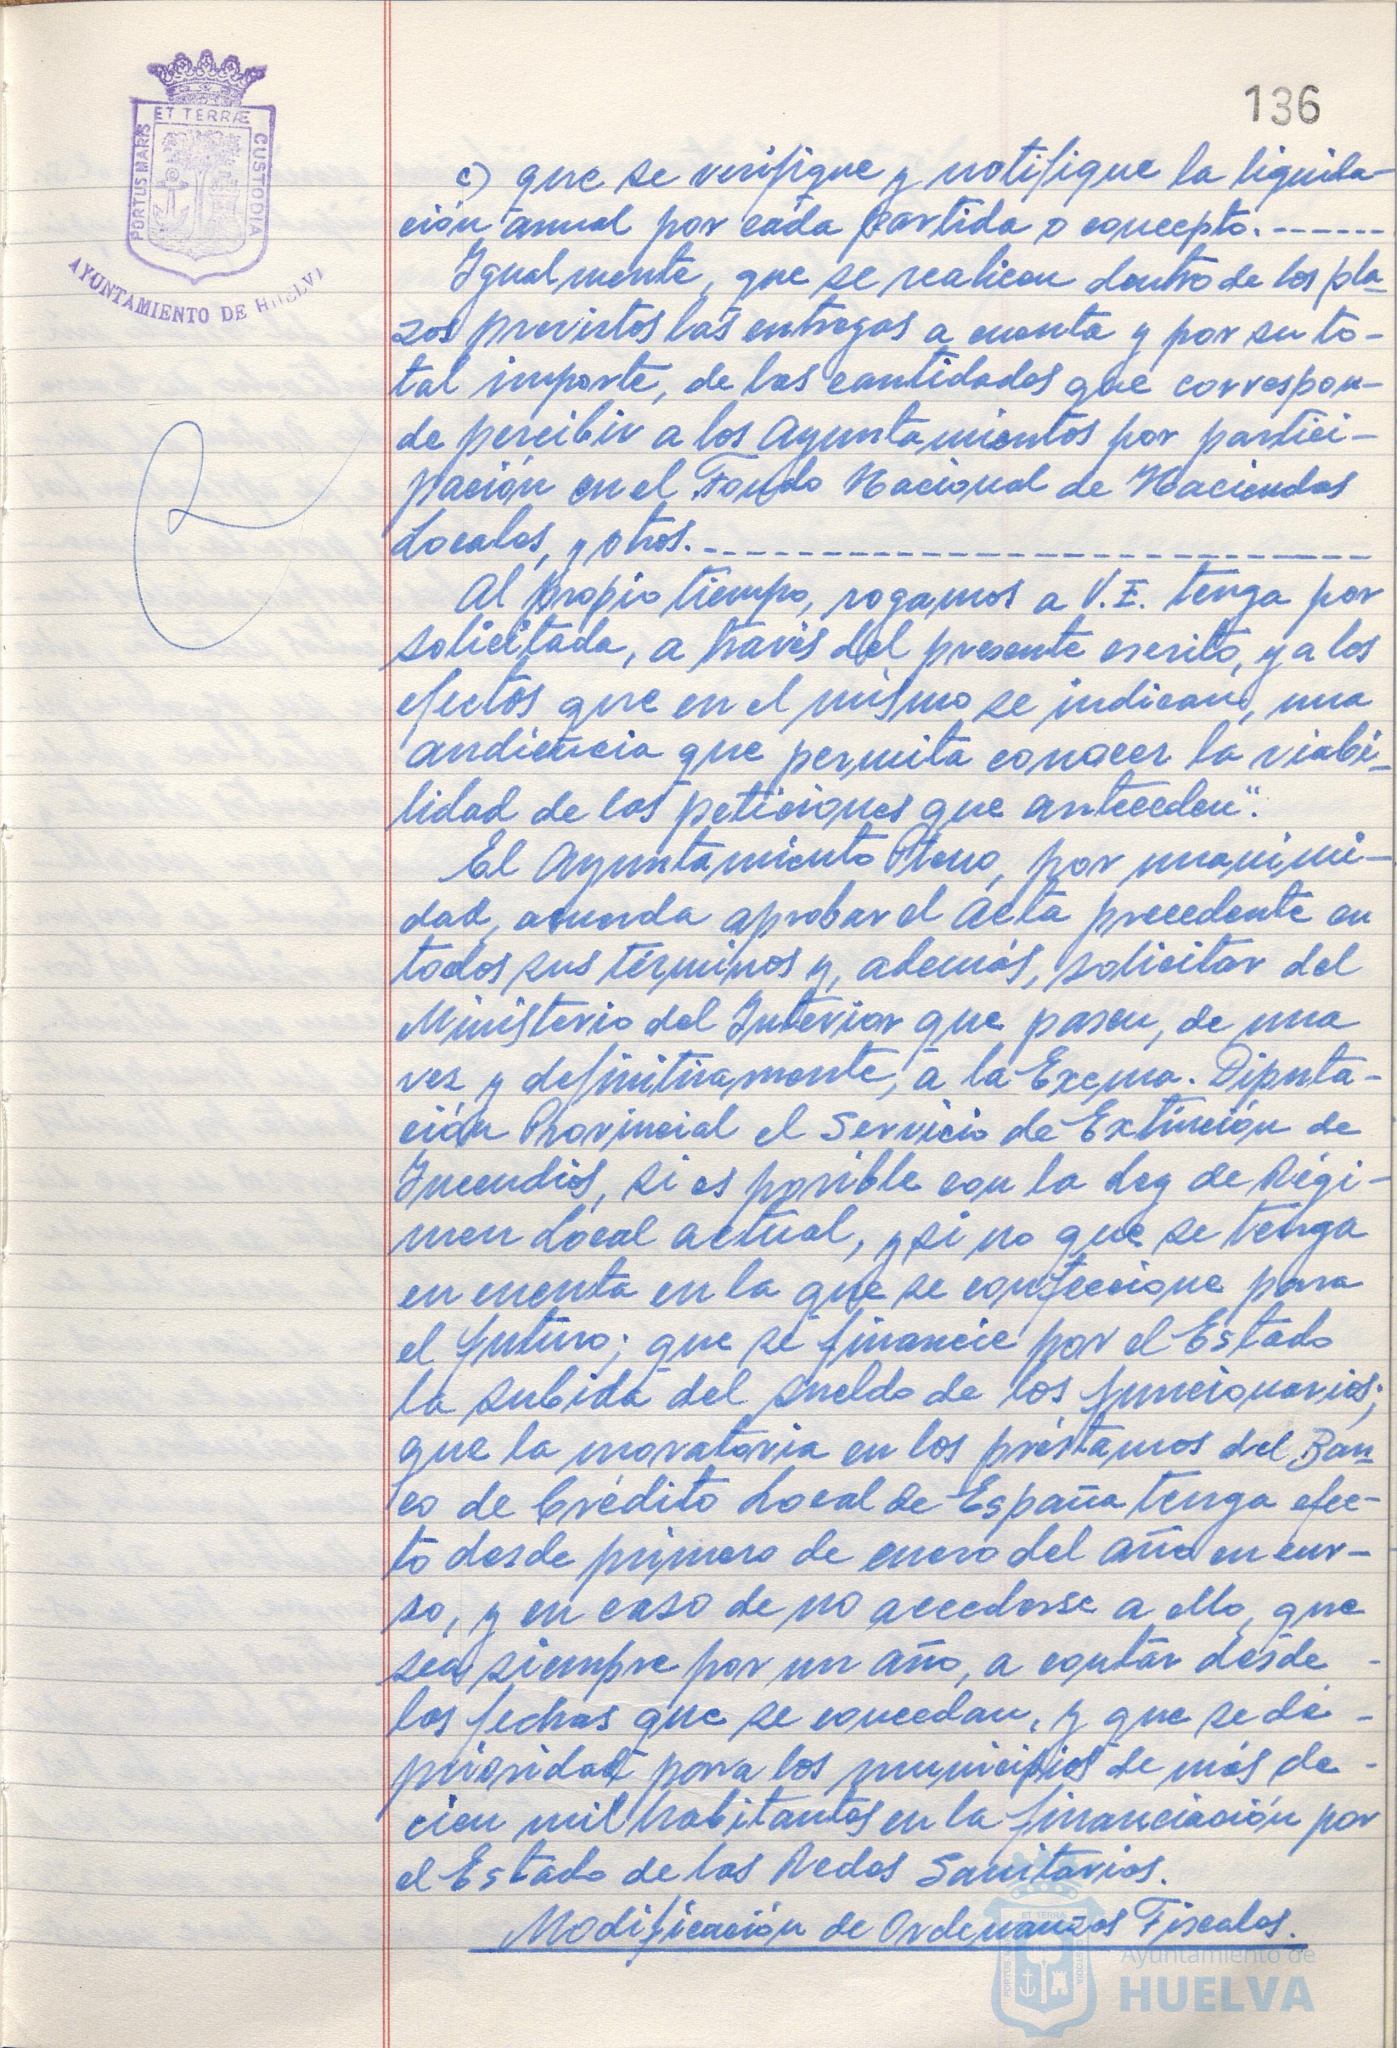 136
ET TERRÆ
PORTUS MARIS
CUSTODIA
AYUNTAMIENTO DE HUELVA
c) que se verifique y notifique la liquida-
ción anual por cada partida o concepto.-------
Igualmente, que se realicen dentro de los pla-
zos previstos las entregas a cuenta y por su to-
tal importe, de las cantidades que correspon-
de percibir a los Ayuntamientos por partici-
pación en el Fondo Nacional de Haciendas
Locales, y otros.---------------------------
Al propio tiempo, rogamos a V.E. tenga por
solicitada, a través del presente escrito, y a los
efectos que en el mismo se indican, una
audiencia que permita conocer la viabi-
lidad de las peticiones que anteceden".
El Ayuntamiento Pleno, por unanimi-
dad, acuerda aprobar el Acta precedente en
todos sus términos y, además, solicitar del
Ministerio del Interior que pasen, de una
vez y definitivamente, a la Excma. Diputa-
ción Provincial el Servicio de Extinción de
Incendios, si es posible con la Ley de Régi-
men Local actual, y si no que se tenga
en cuenta en la que se confeccione para
el futuro; que se financie por el Estado
la subida del sueldo de los funcionarios;
que la moratoria en los préstamos del Ban-
co de Crédito Local de España tenga efec-
to desde primero de enero del año en cur-
so, y en caso de no accederse a ello, que
sea siempre por un año, a contar desde -
las fechas que se concedan, y que se dé -
prioridad para los municipios de más de -
cien mil habitantes en la financiación por
el Estado de las Redes Sanitarias.
Modificación de Ordenanzas Fiscales.
Ayuntamiento de
HUELVA